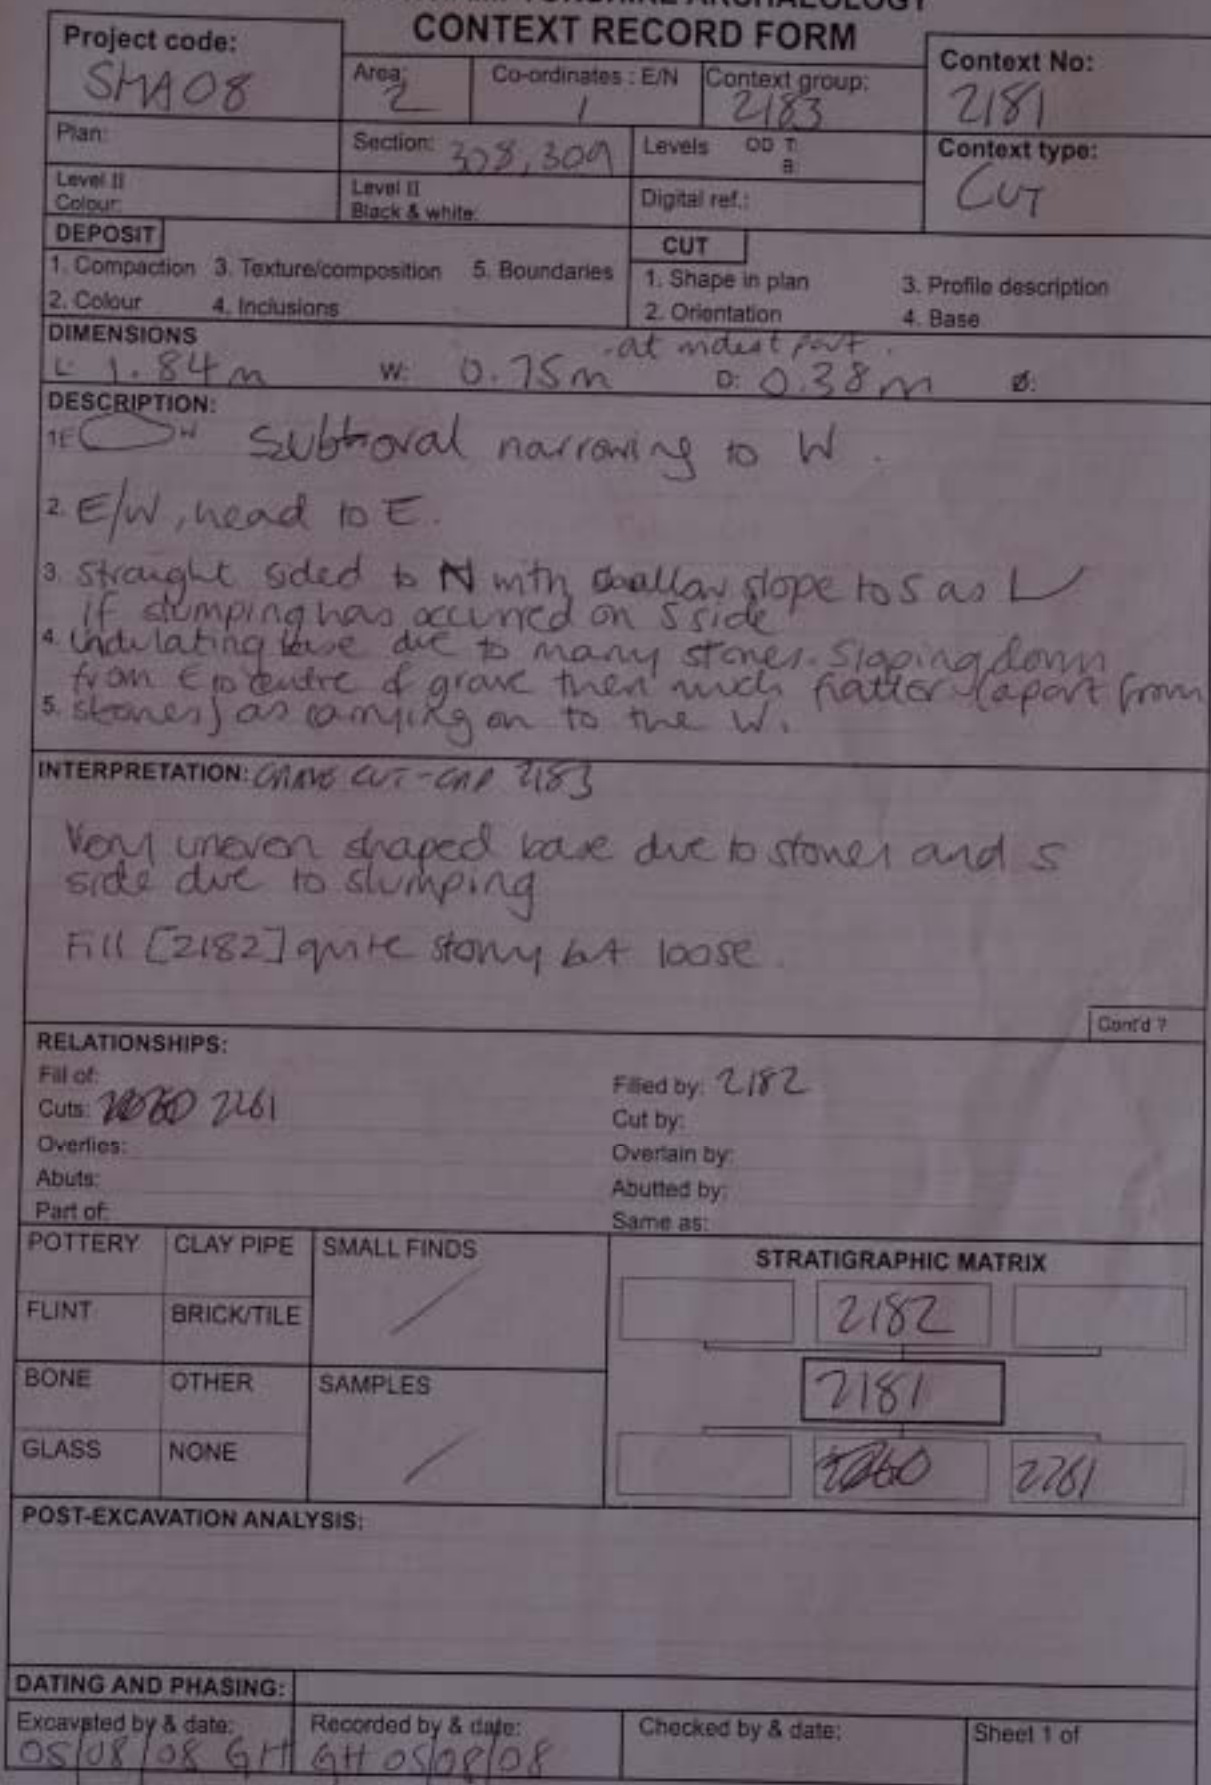 CONTEXT RECORD FORM
Project code: SMA08
Area: 2
Co-ordinates : E/N /
Context group: 2183
Context No: 2181
Plan:
Section: 308, 309
Levels OD T:
B:
Context type: CUT
Level II
Colour:
Level II
Black & white:
Digital ref.:
DEPOSIT
1. Compaction 3. Texture/composition 5. Boundaries
2. Colour 4. Inclusions
CUT
1. Shape in plan 3. Profile description
2. Orientation 4. Base
DIMENSIONS
- at widest part.
L: 1.84m W: 0.75m D: 0.38m Ø:
DESCRIPTION:
1 E W narrowing to W.
2. E/W, head to E.
3. Straight sided to N with shallow slope to S as
if slumping has occurred on S side
4. Undulating base due to many stones. Sloping down
from E to centre of grave then much flatter (apart from
5. stones) as carrying on to the W.
INTERPRETATION: GRAVE CUT - GRP 2183
Very uneven shaped base due to stones and S
side due to slumping
Fill [2182] quite stony but loose.
Cont'd ?
RELATIONSHIPS:
Fill of:
Filled by: 2182
Cuts: 2261
Cut by:
Overlies:
Overlain by:
Abuts:
Abutted by:
Part of:
Same as:
POTTERY CLAY PIPE SMALL FINDS
FLINT BRICK/TILE
BONE OTHER SAMPLES
GLASS NONE
STRATIGRAPHIC MATRIX
2182
2181
2261
POST-EXCAVATION ANALYSIS:
DATING AND PHASING:
Excavated by & date: Recorded by & date: Checked by & date: Sheet 1 of
05/08/08 GH GH 05/08/08